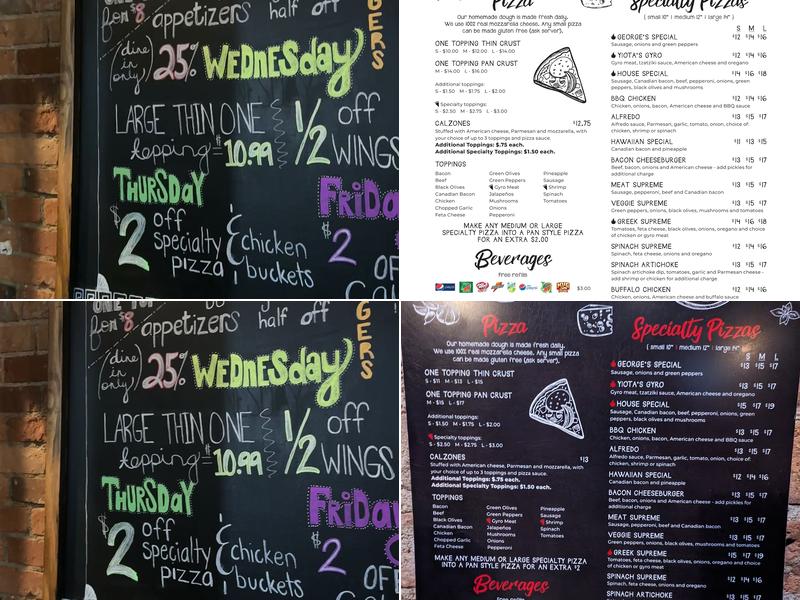 for $8 appetizers half off
GERS
(dine in only) 25% WEDNESDAY
LARGE THIN ONE 1/2 off
topping = $10.99 WINGS
THURSDAY
FRIDA
$2 off specialty pizza & chicken buckets
$2 O
Pizza
Our homemade dough is made fresh daily.
We use 100% real mozzarella cheese. Any small pizza
can be made gluten free (ask server).
ONE TOPPING THIN CRUST
S - $10.00 M - $12.00 L - $14.00
ONE TOPPING PAN CRUST
M - $14.00 L - $16.00
Additional toppings:
S - $1.50 M - $1.75 L - $2.00
Specialty toppings:
S - $2.50 M - $2.75 L - $3.00
CALZONES $12.75
Stuffed with American cheese, Parmesan and mozzarella, with
your choice of up to 3 toppings and pizza sauce.
Additional Toppings: $.75 each.
Additional Specialty Toppings: $1.50 each.
TOPPINGS
Bacon Green Olives Pineapple
Beef Green Peppers Sausage
Black Olives Gyro Meat Shrimp
Canadian Bacon Jalapeños Spinach
Chicken Mushrooms Tomatoes
Chopped Garlic Onions
Feta Cheese Pepperoni
MAKE ANY MEDIUM OR LARGE
SPECIALTY PIZZA INTO A PAN STYLE PIZZA
FOR AN EXTRA $2.00
Beverages
free refills
$3.00
Specialty Pizzas
( small 10" | medium 12" | large 14" )
S M L
GEORGE'S SPECIAL $12 $14 $16
Sausage, onions and green peppers
YIOTA'S GYRO $12 $14 $16
Gyro meat, tzatziki sauce, American cheese and oregano
HOUSE SPECIAL $14 $16 $18
Sausage, Canadian bacon, beef, pepperoni, onions, green
peppers, black olives and mushrooms
BBQ CHICKEN $12 $14 $16
Chicken, onions, American cheese and BBQ sauce
ALFREDO $13 $15 $17
Alfredo sauce, Parmesan, garlic, tomato, onion, choice of:
chicken, shrimp or spinach
HAWAIIAN SPECIAL $11 $13 $15
Canadian bacon and pineapple
BACON CHEESEBURGER $13 $15 $17
Beef, bacon, onions and American cheese - add pickles for
additional charge
MEAT SUPREME $13 $15 $17
Sausage, pepperoni, beef and Canadian bacon
VEGGIE SUPREME $13 $15 $17
Green peppers, onions, black olives, mushrooms and tomatoes
GREEK SUPREME $14 $16 $18
Spinach, feta, onions, black olives, tomatoes, oregano and choice
of chicken or gyro meat
SPINACH SUPREME $12 $14 $16
Spinach, feta cheese, onions and oregano
SPINACH ARTICHOKE $13 $15 $17
Spinach artichoke dip, tomatoes, garlic and Parmesan cheese -
add shrimp or chicken for additional charge
BUFFALO CHICKEN $12 $14 $16
Chicken, onions, American cheese and buffalo sauce
for $8 appetizers half off
GERS
(dine in only) 25% WEDNESDAY
LARGE THIN ONE 1/2 off
topping = 10.99 WINGS
THURSDAY
FRIDA
$2 off specialty pizza & chicken buckets
$2 OF
Pizza
Our homemade dough is made fresh daily.
We use 100% real mozzarella cheese. Any small pizza
can be made gluten free (ask server).
ONE TOPPING THIN CRUST
S - $11 M - $13 L - $15
ONE TOPPING PAN CRUST
M - $15 L - $17
Additional toppings:
S - $1.50 M - $1.75 L - $2.00
Specialty toppings:
S - $2.50 M - $2.75 L - $3.00
CALZONES $13
Stuffed with American cheese, Parmesan and mozzarella, with
your choice of up to 3 toppings and pizza sauce.
Additional Toppings: $.75 each.
Additional Specialty Toppings: $1.50 each.
TOPPINGS
Bacon Green Olives Pineapple
Beef Green Peppers Sausage
Black Olives Gyro Meat Shrimp
Canadian Bacon Jalapeños Spinach
Chicken Mushrooms Tomatoes
Chopped Garlic Onions
Feta Cheese Pepperoni
MAKE ANY MEDIUM OR LARGE SPECIALTY PIZZA
INTO A PAN STYLE PIZZA FOR AN EXTRA $2
Beverages
free refills
Specialty Pizzas
( small 10" | medium 12" | large 14" )
S M L
GEORGE'S SPECIAL $13 $15 $17
Sausage, onions and green peppers
YIOTA'S GYRO $13 $15 $17
Gyro meat, tzatziki sauce, American cheese and oregano
HOUSE SPECIAL $15 $17 $19
Sausage, Canadian bacon, beef, pepperoni, onions, green
peppers, black olives and mushrooms
BBQ CHICKEN $13 $15 $17
Chicken, onions, American cheese and BBQ sauce
ALFREDO $13 $15 $17
Alfredo sauce, Parmesan, garlic, tomato, onion, choice of:
chicken, shrimp or spinach
HAWAIIAN SPECIAL $12 $14 $16
Canadian bacon and pineapple
BACON CHEESEBURGER $13 $15 $17
Beef, bacon, onions and American cheese - add pickles for
additional charge
MEAT SUPREME $13 $15 $17
Sausage, pepperoni, beef and Canadian bacon
VEGGIE SUPREME $13 $15 $17
Green peppers, onions, black olives, mushrooms and tomatoes
GREEK SUPREME $15 $17 $19
Spinach, feta, onions, black olives, tomatoes, oregano and choice
of chicken or gyro meat
SPINACH SUPREME $12 $14 $16
Spinach, feta cheese, onions and oregano
SPINACH ARTICHOKE $13 $15 $17